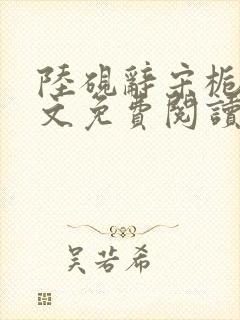 陸硯辭宋梔
文免費閱讀
吴若希